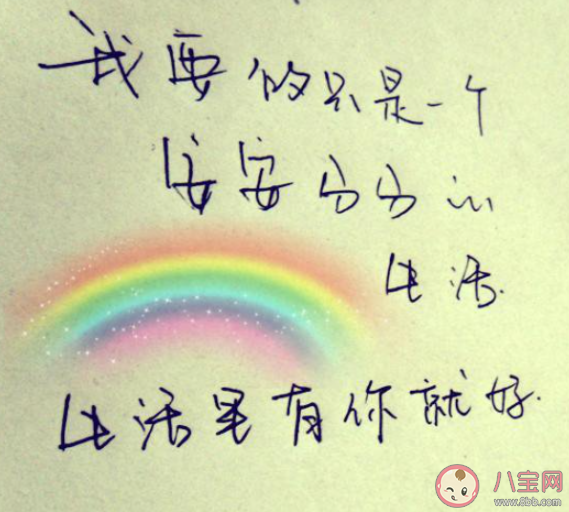 我要的只是一个
安安分分的
生活.
生活里有你就好.
八宝网
www.8bb.com